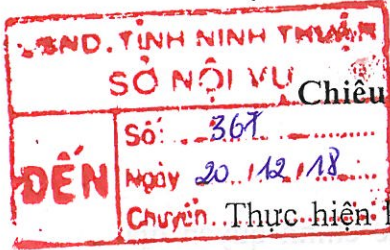 UBND.TỈNH NINH THUẬN
SỞ NỘI VỤ
Chiêu
ĐẾN
Số: 367
Ngày 20/12/18
Chuyển
Thực hiện